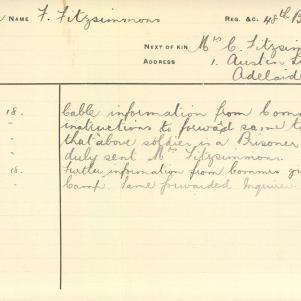 NAME F. Fitzsimmons REG. &C. 48th B
NEXT OF KIN Mrs C. Fitzsim
ADDRESS 1. Austin
Adelaid
18. Cable information from Comm
instructions to forward same to
that above soldier is a Prisoner
duly sent Mrs Fitzsimmons.
18. Further information from Commrs
Camp. Same forwarded Inquirer